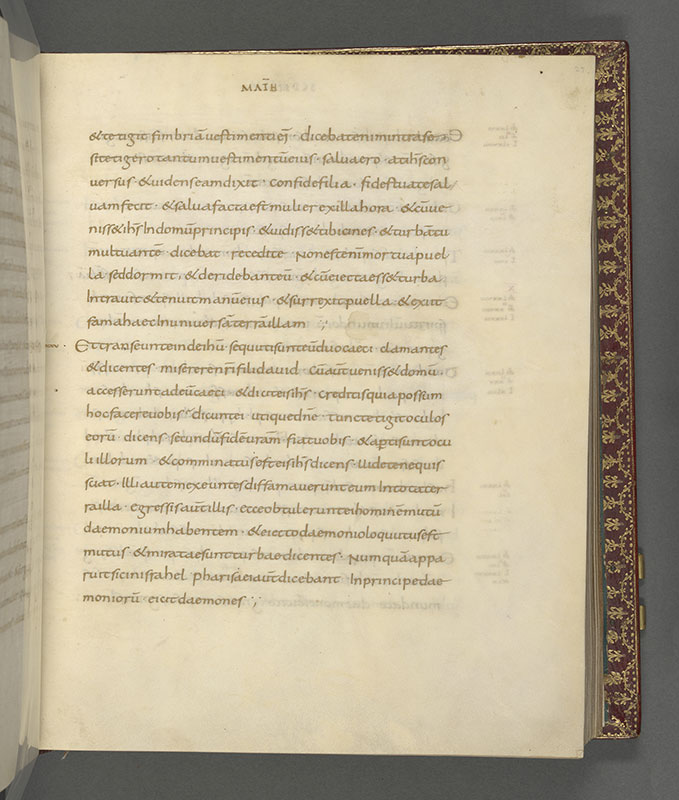 MATH
& tetigit fimbriā vestimenti ei · dicebat enim intra se
si tetigero tantum vestimentū eius · salva ero · at ihs con
versus · & videns eam dixit · confide filia · fides tua te sal
vam fecit · & salva facta est mulier ex illa hora · & cū ve
niss& ihs In domū principis · & vidiss& tibicines · & turbātu
multuantē dicebat · recedite Non est enī mortua puel
la sed dormit, & deridebant eū · & cū eiecta ess& turba
Intravit & tenuit manū eius · & surrexit puella · & exiit
fama haec In universā terrā illam
Et transeunte inde ihū · secuti sunt eū duo caeci · clamantes
& dicentes · miserere nri fili david · cū aut veniss& domū ·
accesserunt ad eū caeci · & dicit eis ihs · creditis quia possum
hoc facere vobis · dicunt ei · utique dne · tunc tetigit oculos
eorū · dicens · secundū fidē vram · fiat vobis · & apti sunt ocu
li illorum · & comminatus est eis ihs dicens · Vid&e ne quis
sciat · Illi autem exeuntes diffamaverunt eum In tota ter
ra illa · egressis aut illis · ecce obtulerunt ei hominē mutū
daemonium habentem · & eiecto daemonio locutus est
mutus · & miratae sunt turbae dicentes · Numquā appa
ruit sic in israhel pharisaei aut dicebant In principe dae
moniorū · eicit daemones